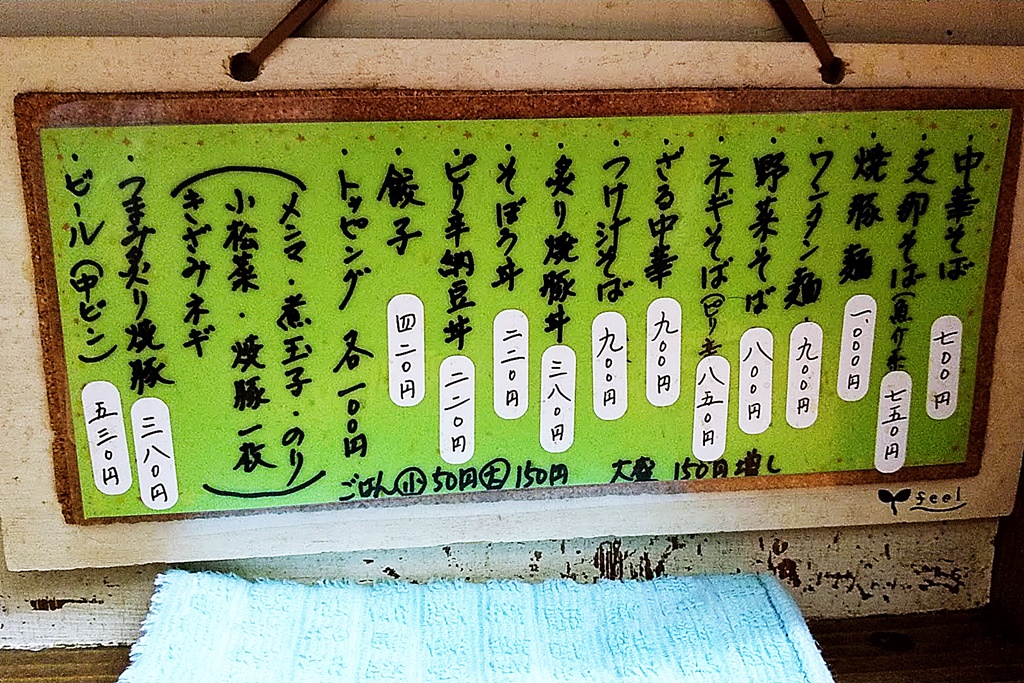 ・中華そば 七〇〇円
・支那そば(魚介系) 七五〇円
・焼豚麺 一、〇〇〇円
・ワンタン麺 九〇〇円
・野菜そば 八〇〇円
・ネギそば(ピリ辛) 八五〇円
・ざる中華 九〇〇円
・つけ汁そば 九〇〇円
・炙り焼豚丼 三八〇円
・そぼろ丼 二二〇円
・ピリ辛納豆丼 二二〇円
・餃子 四二〇円
・トッピング 各一〇〇円
(メンマ・煮玉子・のり
小松菜・焼豚一枚
きざみネギ)
・つまみ炙り焼豚 三八〇円
・ビール(中ビン) 五三〇円
ごはん(小)50円(大)150円 大盛 150円増し
feel